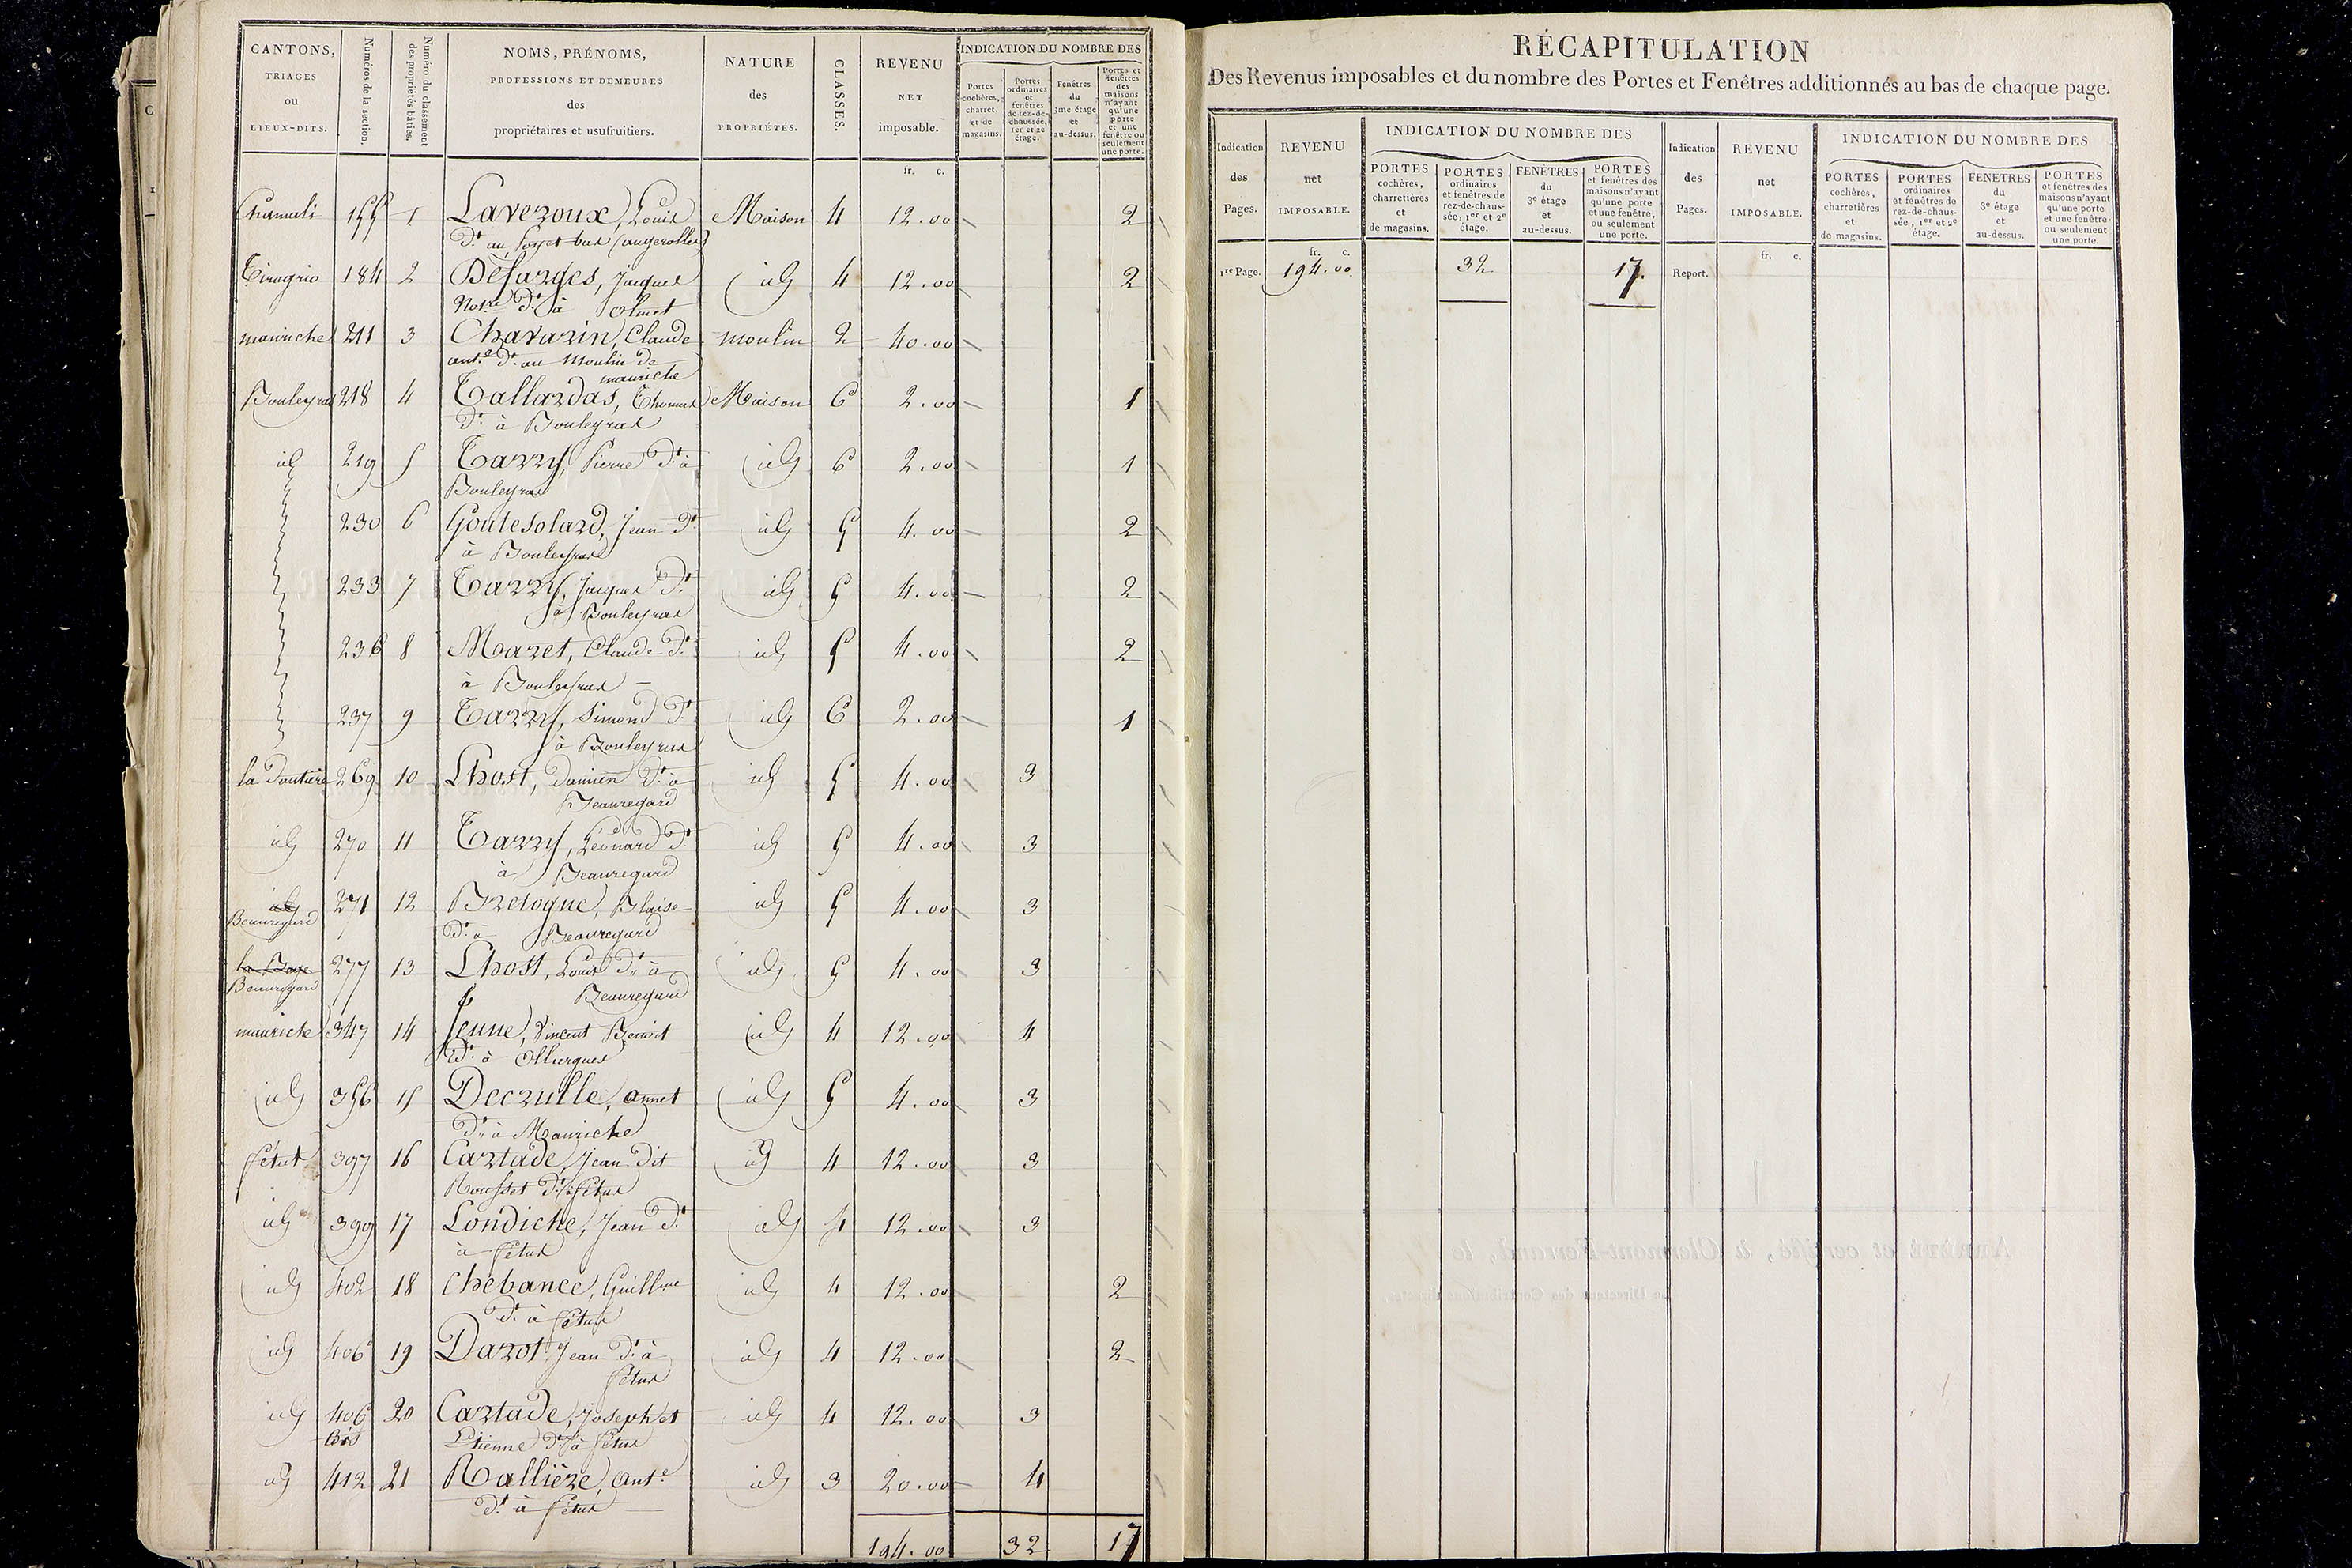 CANTONS, TRIAGES ou LIEUX-DITS.
Numéros de la section.
Numéro du classement des propriétés bâties.
NOMS, PRÉNOMS, PROFESSIONS ET DEMEURES des propriétaires et usufruitiers.
NATURE des PROPRIÉTÉS.
CLASSES.
REVENU NET imposable.
INDICATION DU NOMBRE DES
Portes cochères, charret. et de magasins.
Portes ordinaires et fenêtres de rez-de-chaussée, 1er et 2e étage.
Fenêtres du 3me étage et au-dessus.
Portes et fenêtres des maisons n'ayant qu'une porte et une fenêtre ou seulement une porte.
fr. c.
155 1 Laveroux, Louis Maison 4 12.00 2
184 2 Désarges, Jacques id 4 12.00 2
Notre Dt à Olmet
mauriche 211 3 Chavarin, Claude moulin 2 40.00
ant.e Dt au Moulin de
mauriche
Bouleyras 218 4 Tallardas, Thomas Maison 6 2.00 1
Dt à Bouleyras
id 219 5 Tarry, Pierre Dt à id 6 2.00 1
Bouleyras
230 6 Goutesolard, Jean Dt id 5 4.00 2
à Bouleyras
233 7 Tarry, Jacques Dt id 5 4.00 2
à Bouleyras
236 8 Mazet, Claude Dt id 5 4.00 2
à Bouleyras
237 9 Tarry, Simond Dt id 6 2.00 1
à Bouleyras
269 10 Lhost, Damien Dt à id 5 4.00 3
Beauregard
id 270 11 Tarry, Léonard Dt id 5 4.00 3
à Beauregard
id 271 12 Bretogne, Blaise id 5 4.00 3
Beauregard Dt à Beauregard
277 13 Lhost, Louis Dt à id 5 4.00 3
Beauregard Beauregard
mauriche 347 14 Jenne, Vincent Benoit id 4 12.00 4
Dt à Ollierques
id 356 15 Decrulle, annet id 5 4.00 3
Dt à Mauriche
fétut 397 16 Cartade, Jean dit id 4 12.00 3
Rousset Dt à fétus
id 399 17 Londiche, Jean Dt id 4 12.00 3
à fétus
id 402 18 Chebance, Guillme id 4 12.00 2
Dt à fétus
id 406 19 Darot, Jean Dt à id 4 12.00 2
fétus
id 406 20 Cartade, Joseph et id 4 12.00 3
Bis Etienne Dt à fétus
id 412 21 Rallière, Ant.e id 3 20.00 4
Dt à fétus
194.00 32 17
RÉCAPITULATION
Des Revenus imposables et du nombre des Portes et Fenêtres additionnés au bas de chaque page.
Indication des Pages.
REVENU net IMPOSABLE.
INDICATION DU NOMBRE DES
PORTES cochères, charretières et de magasins.
PORTES ordinaires et fenêtres de rez-de-chaussée, 1er et 2e étage.
FENÊTRES du 3e étage et au-dessus.
PORTES et fenêtres des maisons n'ayant qu'une porte et une fenêtre, ou seulement une porte.
Indication des Pages.
REVENU net IMPOSABLE.
INDICATION DU NOMBRE DES
PORTES cochères, charretières et de magasins.
PORTES ordinaires et fenêtres de rez-de-chaussée, 1er et 2e étage.
FENÊTRES du 3e étage et au-dessus.
PORTES et fenêtres des maisons n'ayant qu'une porte et une fenêtre ou seulement une porte.
fr. c. fr. c.
1re Page. 194.00. 32 17. Report.